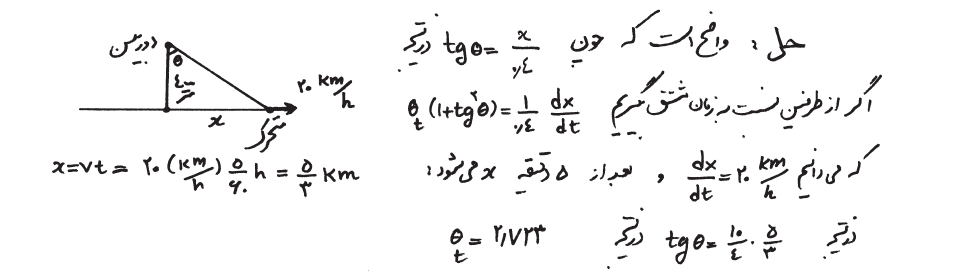 حل : واضح است که چون tgθ = x/۰٫۴ در نتیجه
اگر از طرفین نسبت به زمان مشتق بگیریم θₜ(1+tg²θ) = ۱/۰٫۴ dx/dt
که می دانیم dx/dt = ۲۰ km/h و بعد از ۵ دقیقه x می شود :
در نتیجه tgθ = ۱۰/۴ . ۵/۳ در نتیجه θₜ = ۲٫۷۲۳
دوربین
θ
۲۰ km/h
x
متحرک
x = vt = ۲۰ (km/h) ۵/۶۰ h = ۵/۳ km